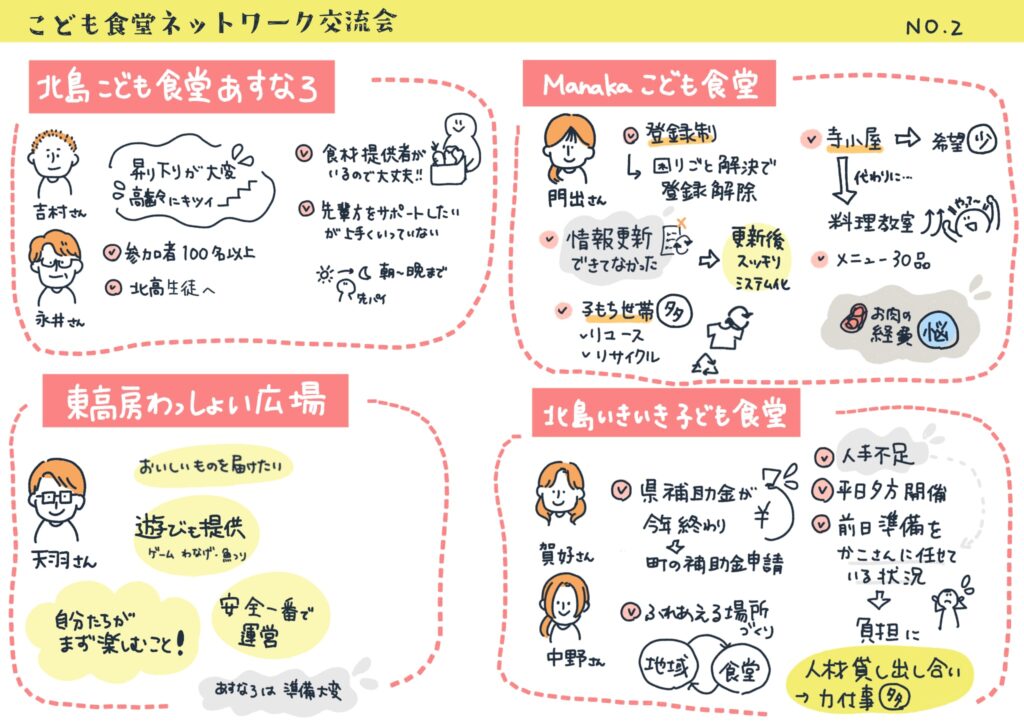 こども食堂ネットワーク交流会
NO.2
北島こども食堂あすなろ
吉村さん
昇り下りが大変
高齢にキツイ
永井さん
参加者100名以上
北高生徒へ
食材提供者が
いるので大丈夫!!
先輩方をサポートしたい
が上手くいっていない
朝〜晩まで
先パイ
Manakaこども食堂
門出さん
登録制
困りごと解決で
登録解除
情報更新
できてなかった
更新後
スッキリ
システム化
子もち世帯 多
リユース
リサイクル
寺小屋
希望 少
代わりに…
料理教室
やったー
メニュー30品
お肉の
経費
悩
東高房わっしょい広場
天羽さん
おいしいものを届けたい
遊びも提供
ゲーム わなげ・魚つり
自分たちが
まず楽しむこと!
安全一番で
運営
あすなろは準備大変
北島いきいき子ども食堂
賀好さん
中野さん
県補助金が
今年終わり
¥
町の補助金申請
ふれあえる場所
づくり
地域
食堂
人手不足
平日夕方開催
前日準備を
かこさんに任せて
いる状況
負担に
人材貸し出し合い
→力仕事 多